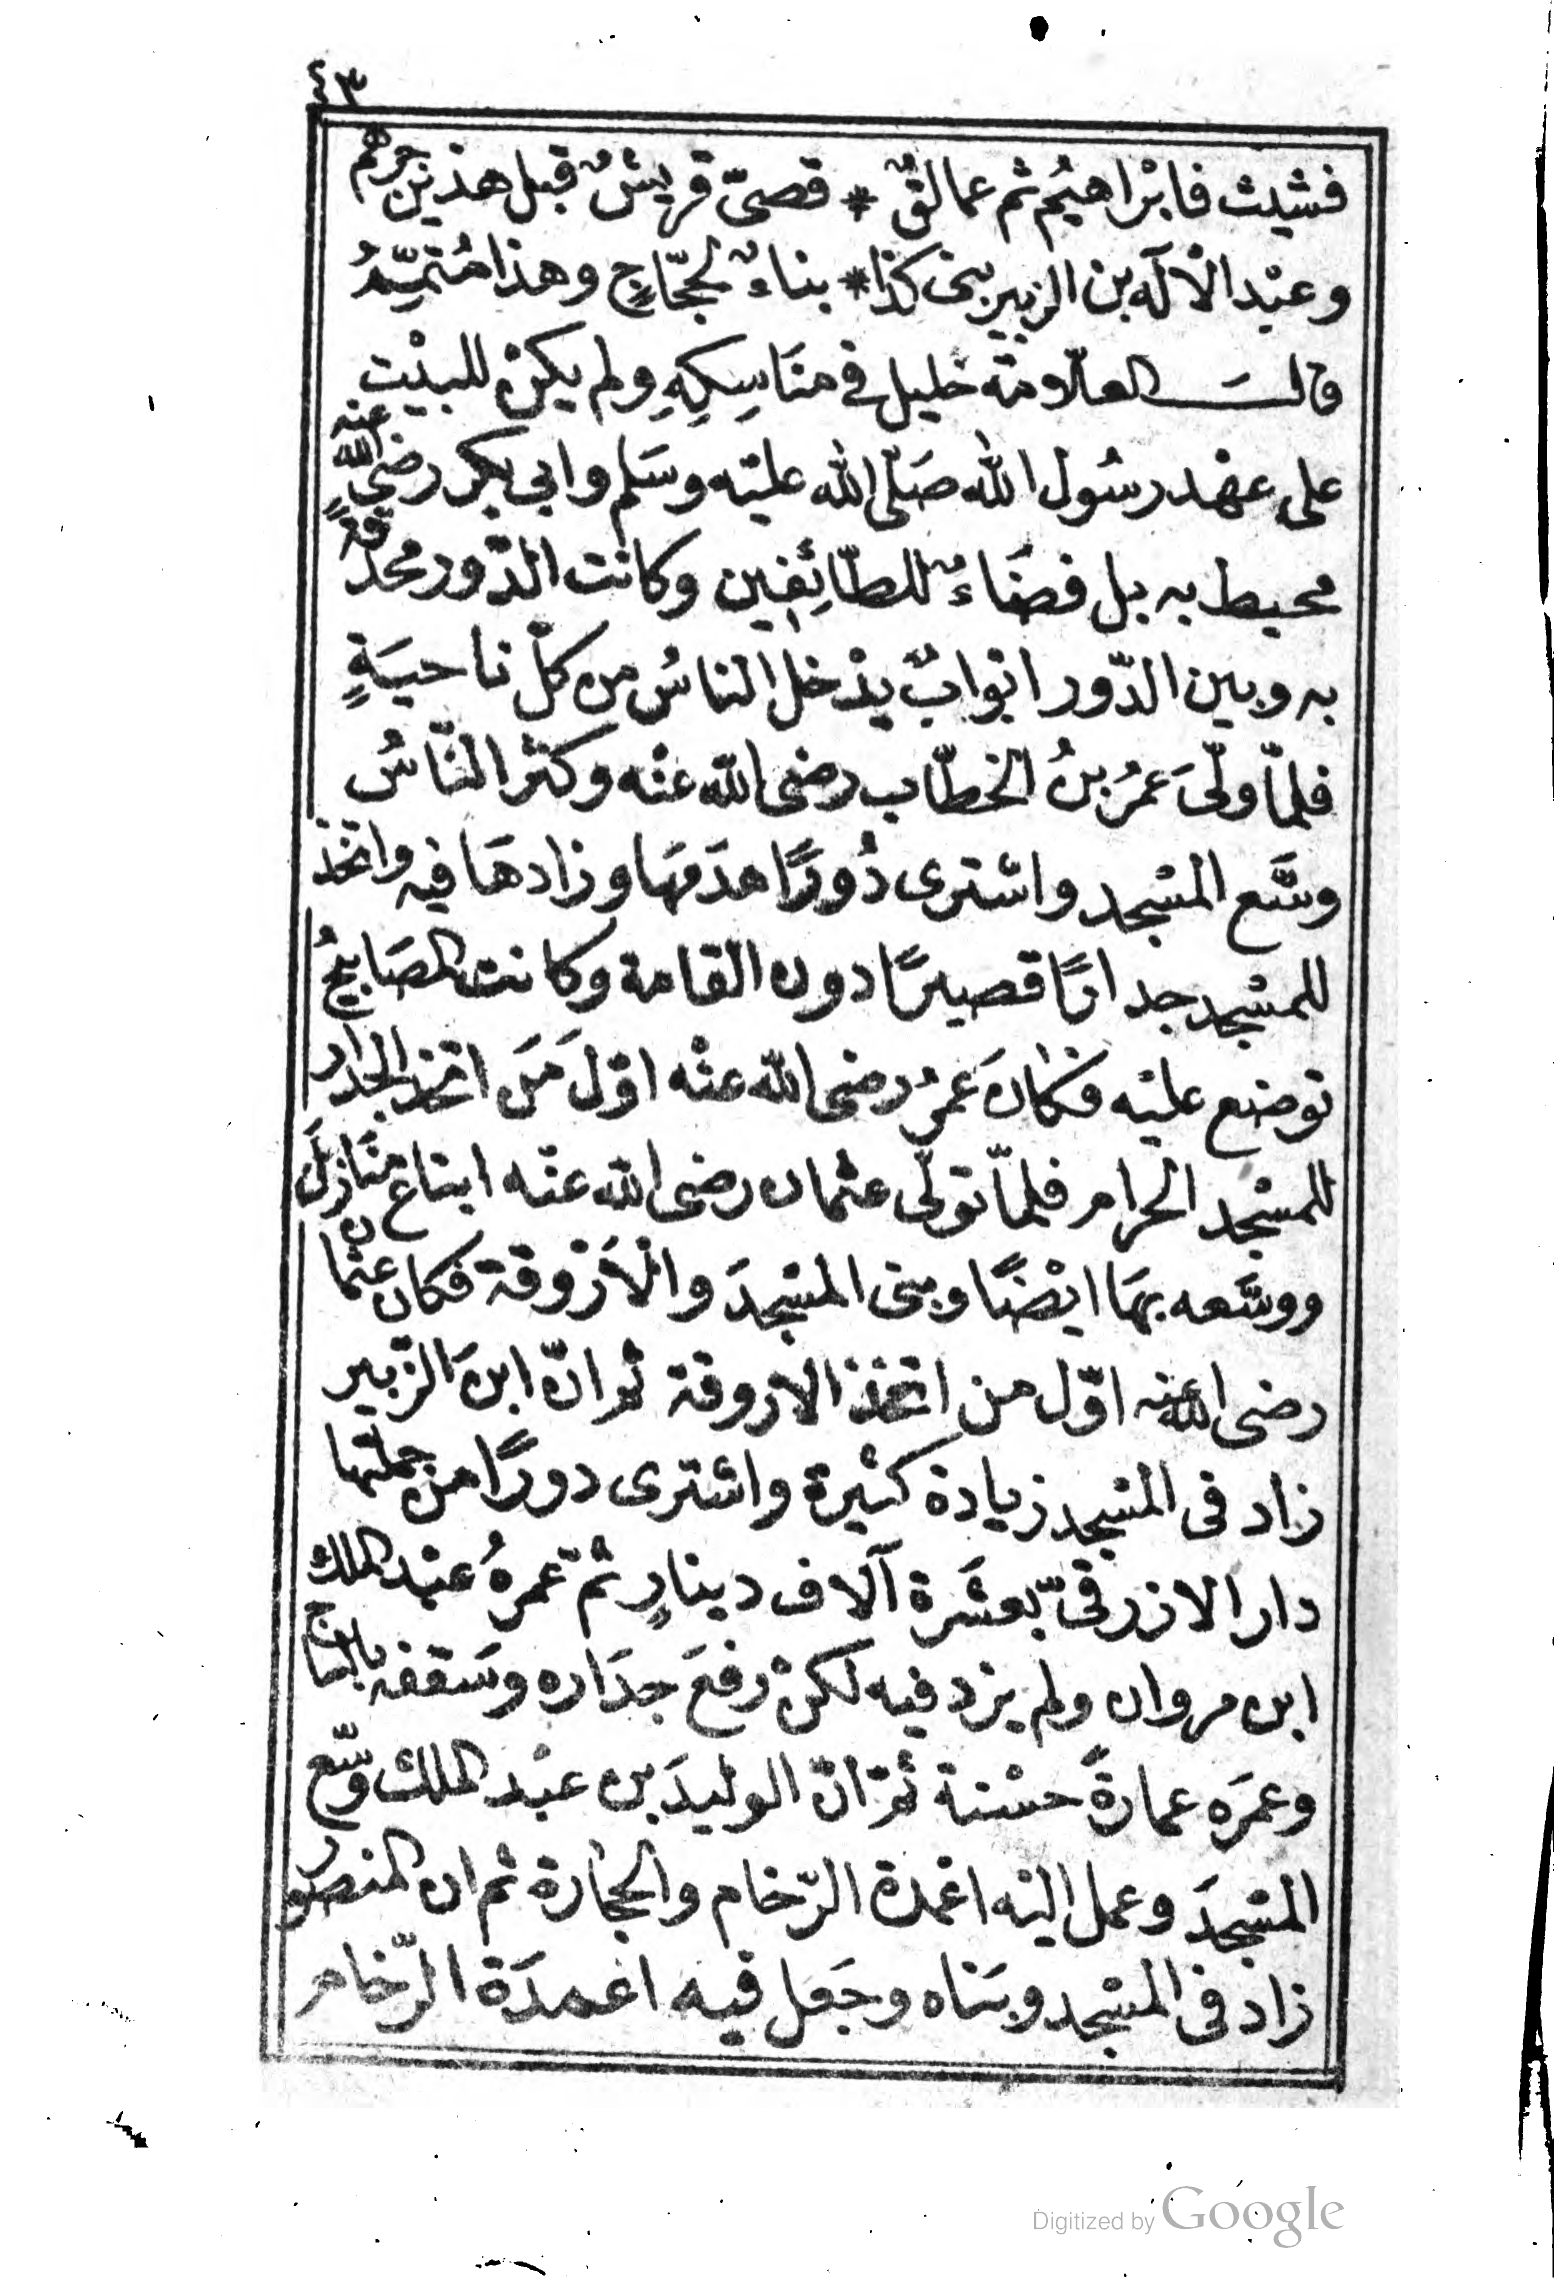 ٤٣
فشيث فابْراهيُم ثم عمالقٌ * قصىّ قريشٌ قبل هذين جرهم
وعبْد الاله بن الزبير بنى كذا * بناءٌ لحجّاجٍ وهذا مُتمِّمُ
قالـَ العلّامة خليل فى منَاسِكِهِ ولم يكنْ للبيْتِ
على عهْد رسُول الله صَلّى الله عليْه وسَلم وابى بكر رضى الله عنه
محيط به بل فضَاءٌ للطّائِفين وكانت الدّور محدقةٍ
به وبين الدّور ابْوابٌ يدْخل الناسُ من كلّ ناحيَةٍ
فلمّا ولّىَ عمَرُ بنُ الخطّاب رضى الله عنْه وكثر النّاسُ
وسَّع المسْجد واشترى دُورًا هدَمهَا وزادهَا فيه واتّخذ
للمسْجد جدارًا قصيرًا دون القامة وكانت المصَابيحُ
توضع عليْه فكانَ عمَرُ رضى الله عنْه اوّلَ مَن اتّخذ الجدار
للمسْجد الحرام فلمّا تولّى عثمان رضى الله عنْه ابتاع منَازلَ
ووسَّعه بهَا ايْضًا وبنى المسْجدَ والْاَرْوقة فكان عثمان
رضى الله عنه اوّل من اتّخذ الاروقة ثم انّ ابنَ الزّبير
زاد فى المسْجد زيادة كثيرة واشترى دورًا من جملتها
دار الازرقىّ بعشَرة آلاف دينارٍ ثمّ عمرهُ عبْد الملك
ابن مروان ولم يزد فيه لكنْ رفعَ جدَاره وسَقفه بالساج
وعمَره عمارةً حسْنة ثمّ انّ الوليدَ بن عبْد الملك وسّع
المسْجدَ وعمل اليْه اعْمدة الرّخام والحجارة ثم ان المنصور
زاد فى المسْجد وبَناه وجَعل فيه اعمدَة الرّخام
Digitized by Google